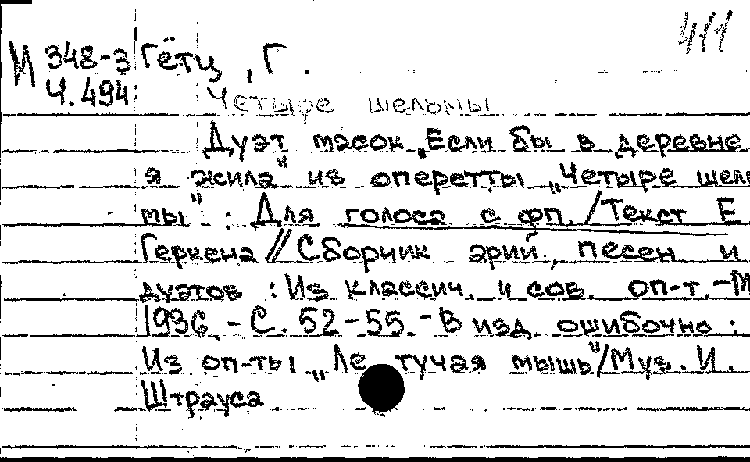 411
И 348-3 Гётц, Г.
Ч. 494
Четыре шельмы
Дуэт масок „Если бы в деревне
я жила" из оперетты „Четыре шель
мы" : Для голоса с фп. / Текст Е
Геркена // Сборник арий, песен и
дуэтов : Из классич. и сов. оп-т. - М
1936. - С. 52-55. - В изд. ошибочно :
Из оп-ты „Ле тучая мышь" / Муз. И.
Штрауса